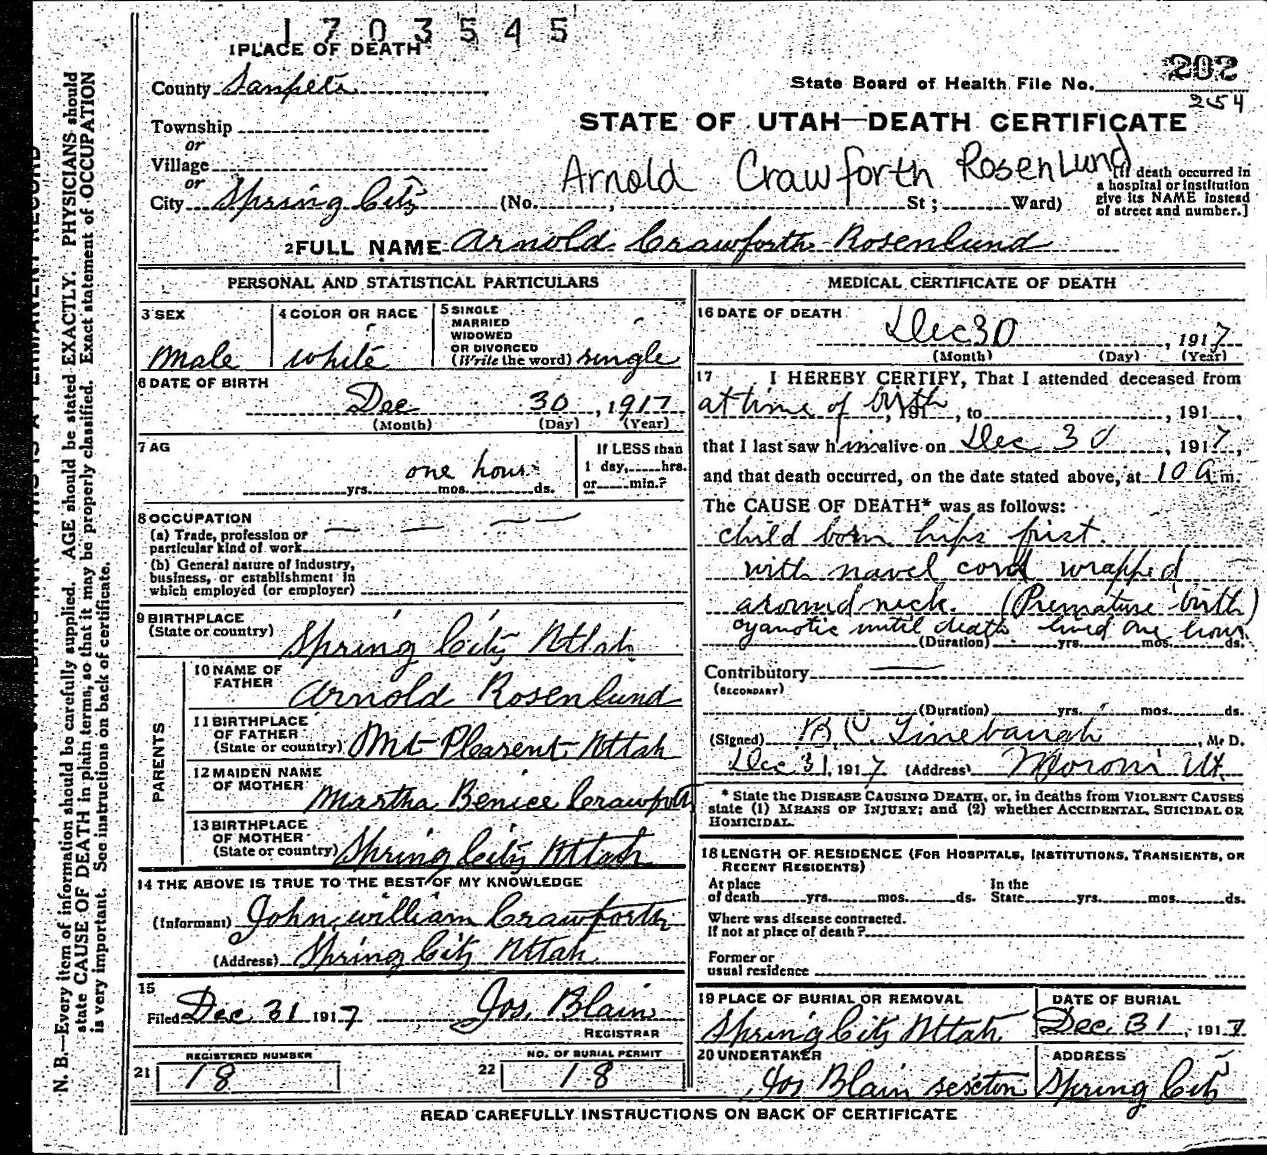 1703545
1 PLACE OF DEATH
202
County Sanpete
State Board of Health File No.
254
Township
STATE OF UTAH—DEATH CERTIFICATE
or
Village
Arnold Crawforth Rosenlund
or
City Spring City (No. , St ; Ward)
[If death occurred in
a hospital or institution
give its NAME instead
of street and number.]
2 FULL NAME Arnold Crawforth Rosenlund
PERSONAL AND STATISTICAL PARTICULARS
3 SEX
male
4 COLOR OR RACE
white
5 SINGLE
MARRIED
WIDOWED
OR DIVORCED
(Write the word) single
6 DATE OF BIRTH
Dec 30, 1917
(Month) (Day) (Year)
7 AG
one hour
yrs. mos. ds.
If LESS than
1 day, hrs.
or min.?
8 OCCUPATION
(a) Trade, profession or
particular kind of work
(b) General nature of industry,
business, or establishment in
which employed (or employer)
9 BIRTHPLACE
(State or country) Spring City Uttah
PARENTS
10 NAME OF
FATHER Arnold Rosenlund
11 BIRTHPLACE
OF FATHER
(State or country) Mt Plesent Uttah
12 MAIDEN NAME
OF MOTHER Martha Benice Crawforth
13 BIRTHPLACE
OF MOTHER
(State or country) Spring City Uttah
14 THE ABOVE IS TRUE TO THE BEST OF MY KNOWLEDGE
(Informant) John william Crawforth
(Address) Spring City Uttah
15
Filed Dec 31 1917 Jos. Blain
REGISTRAR
REGISTERED NUMBER
21 18
NO. OF BURIAL PERMIT
22 18
MEDICAL CERTIFICATE OF DEATH
16 DATE OF DEATH
Dec 30, 1917
(Month) (Day) (Year)
17 I HEREBY CERTIFY, That I attended deceased from
at time of birth, 191 , to , 191 ,
that I last saw him alive on Dec 30, 1917,
and that death occurred, on the date stated above, at 10 a m.
The CAUSE OF DEATH* was as follows:
child born hips first.
with navel cord wrapped
around neck. (Premature birth)
cyanotic until death lived one hour.
(Duration) yrs. mos. ds.
Contributory
(SECONDARY)
(Duration) yrs. mos. ds.
(Signed) B. C. Linebaugh, M. D.
Dec 31, 1917 (Address) Moroni Ut.
* State the DISEASE CAUSING DEATH, or, in deaths from VIOLENT CAUSES
state (1) MEANS OF INJURY; and (2) whether ACCIDENTAL, SUICIDAL OR
HOMICIDAL.
18 LENGTH OF RESIDENCE (FOR HOSPITALS, INSTITUTIONS, TRANSIENTS, OR
RECENT RESIDENTS)
At place
of death yrs. mos. ds.
In the
State yrs. mos. ds.
Where was disease contracted.
If not at place of death?
Former or
usual residence
19 PLACE OF BURIAL OR REMOVAL
Spring City Uttah
DATE OF BURIAL
Dec. 31, 1917
20 UNDERTAKER
Jos Blain sexton
ADDRESS
Spring City
READ CAREFULLY INSTRUCTIONS ON BACK OF CERTIFICATE
N. B.—Every item of information should be carefully supplied. AGE should be stated EXACTLY. PHYSICIANS should
state CAUSE OF DEATH in plain terms, so that it may be properly classified. Exact statement of OCCUPATION
is very important. See instructions on back of certificate.